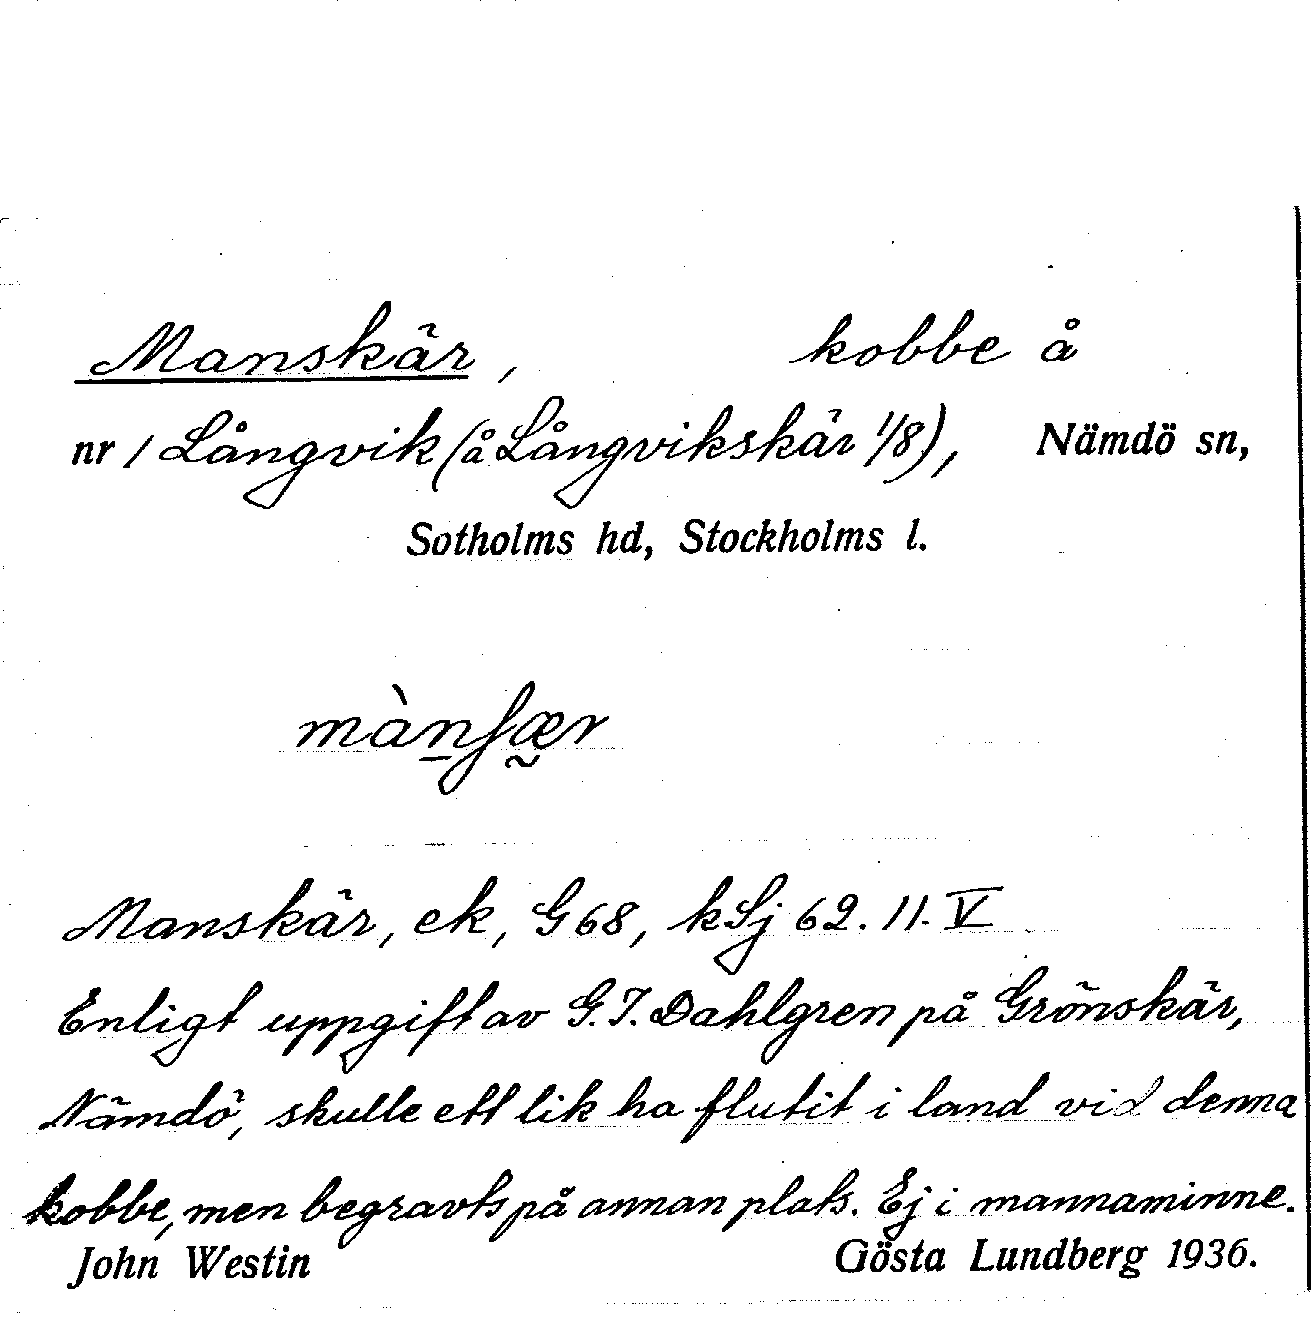 Manskär, kobbe å
nr 1 Långvik (å Långvikskär 1/8), Nämdö sn,
Sotholms hd, Stockholms l.
màn̠ʃæ̰r
Manskär, ek, G68, kSj 62. 11. V
Enligt uppgift av G.I. Dahlgren på Grönskär,
Nämdö, skulle ett lik ha flutit i land vid denna
kobbe, men begravts på annan plats. Ej i mannaminne.
John Westin Gösta Lundberg 1936.